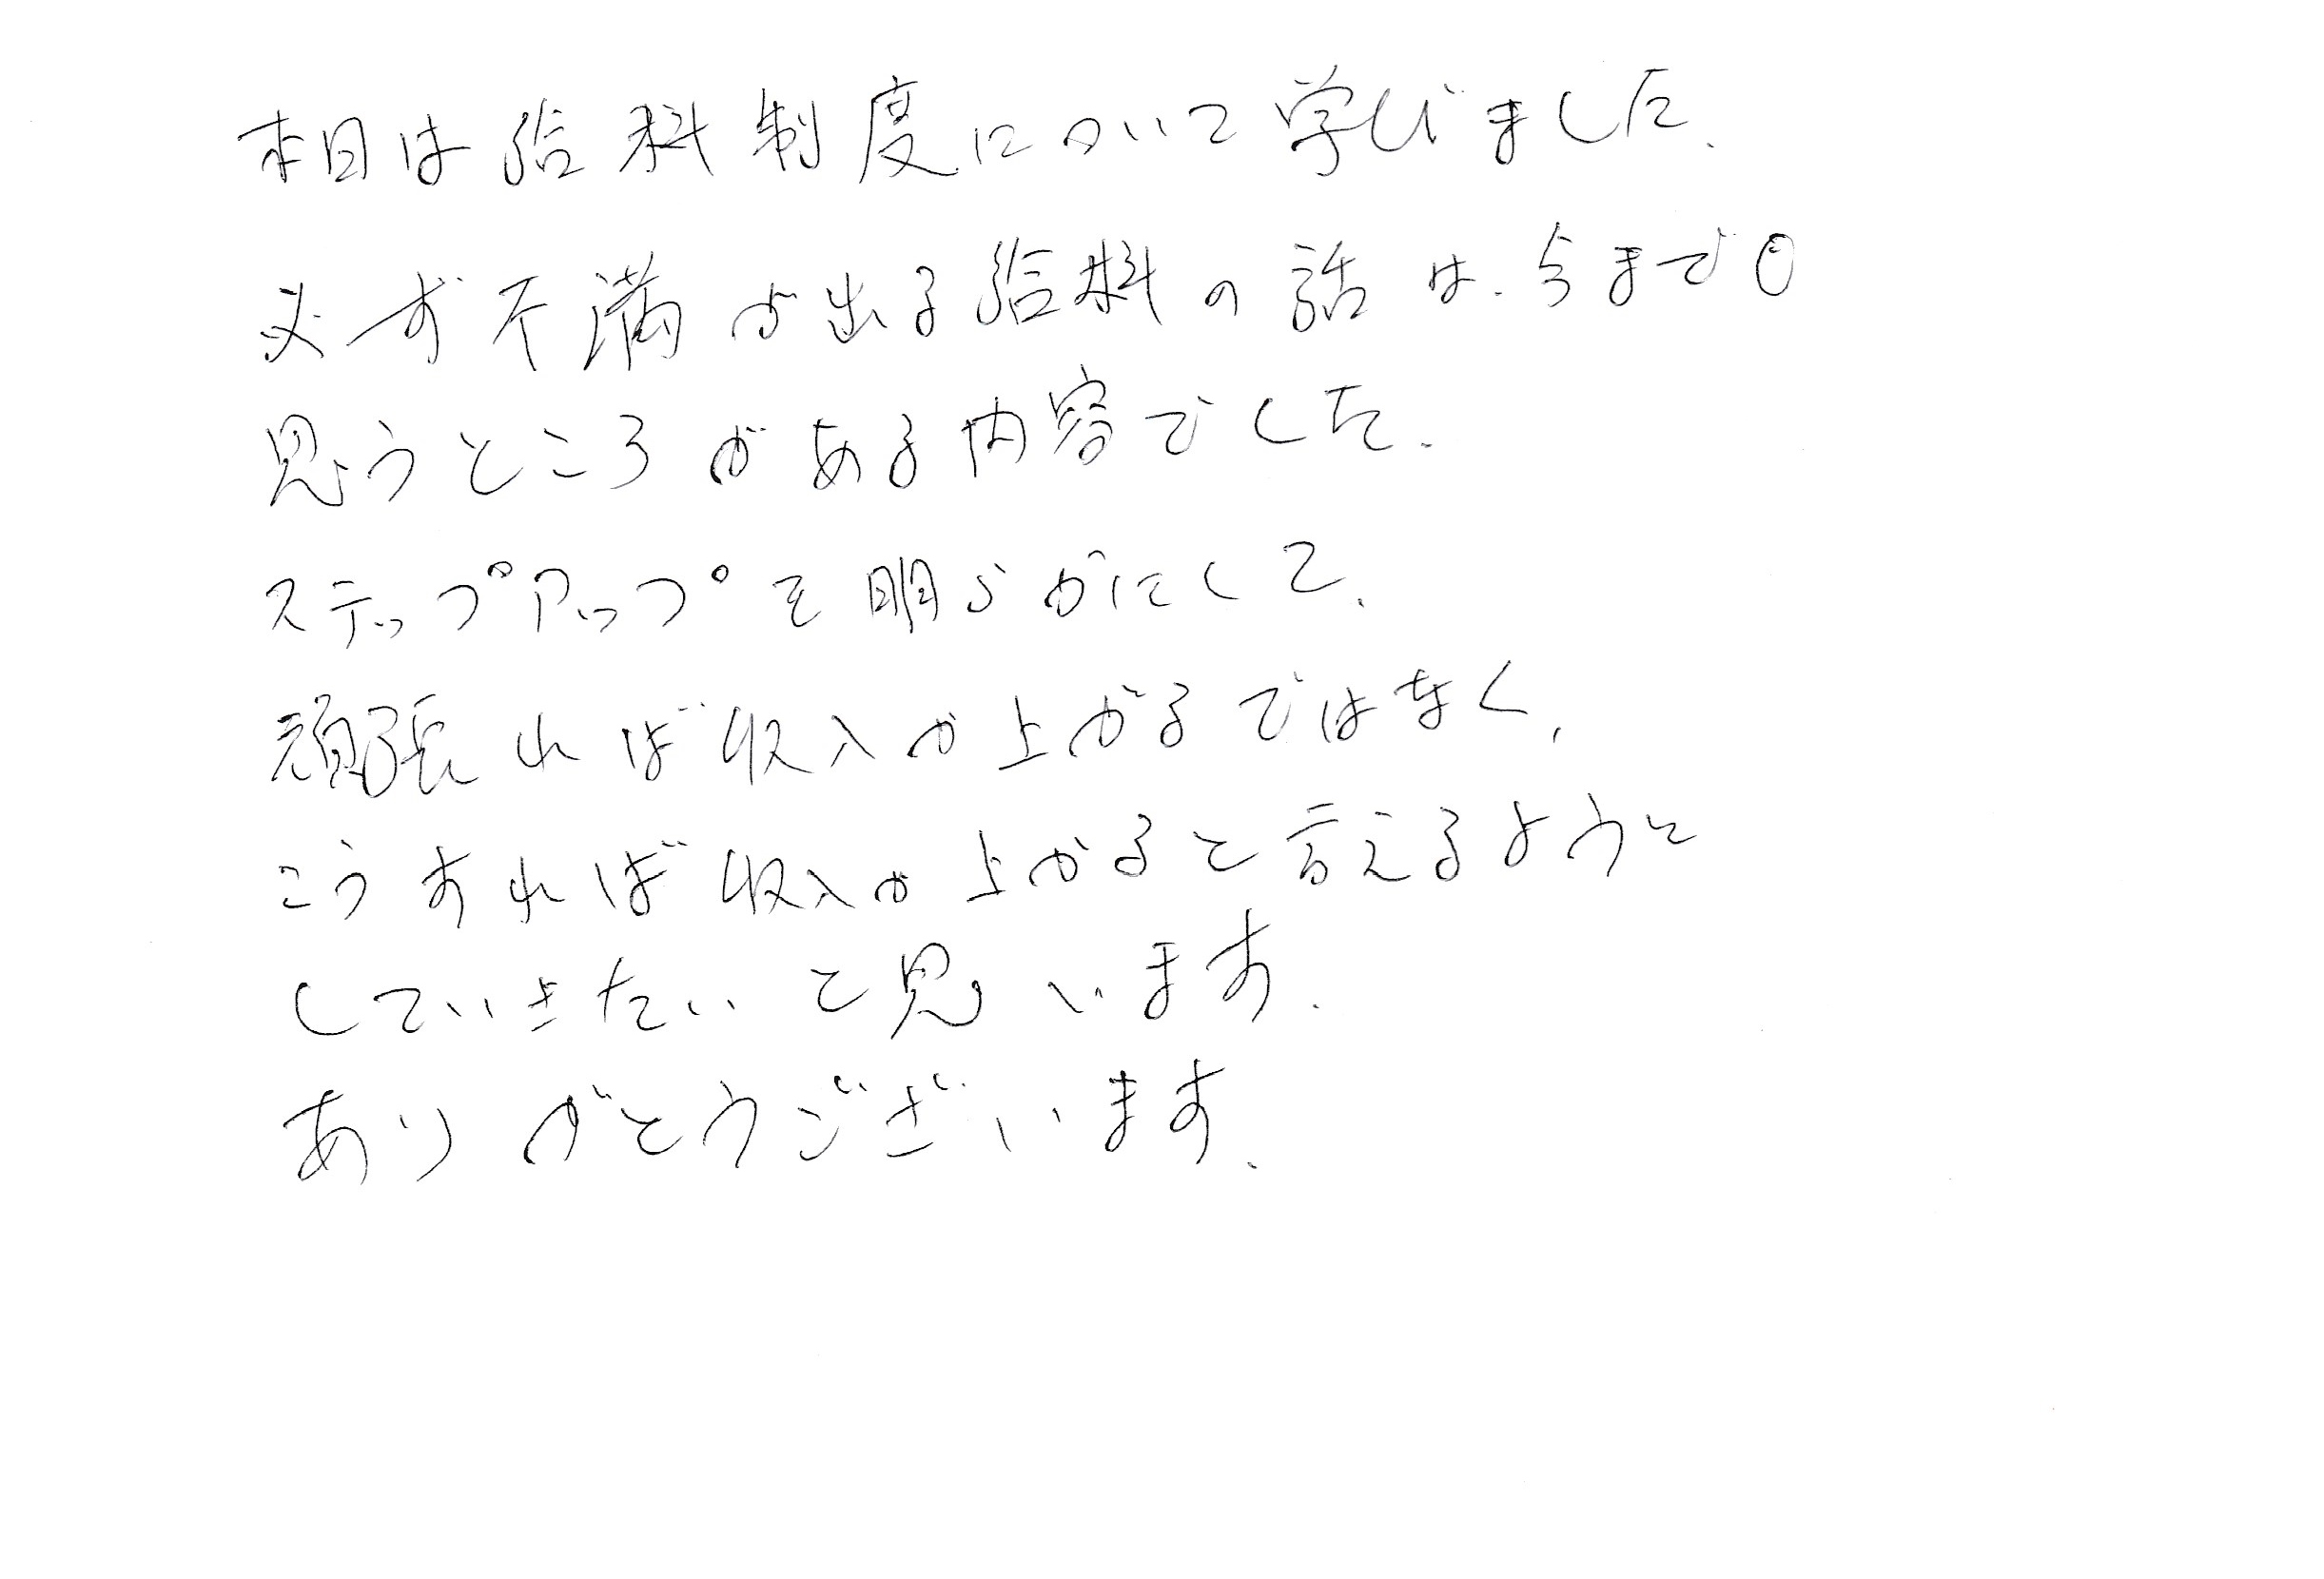 本日は給料制度について学びました.
必ず不満が出る給料の話は、今まで
思うところがある内容でした.
ステップアップを明らかにして、
頑張れば収入が上がるではなく、
こうすれば収入が上がると言えるように
していきたいと思います.
ありがとうございます.